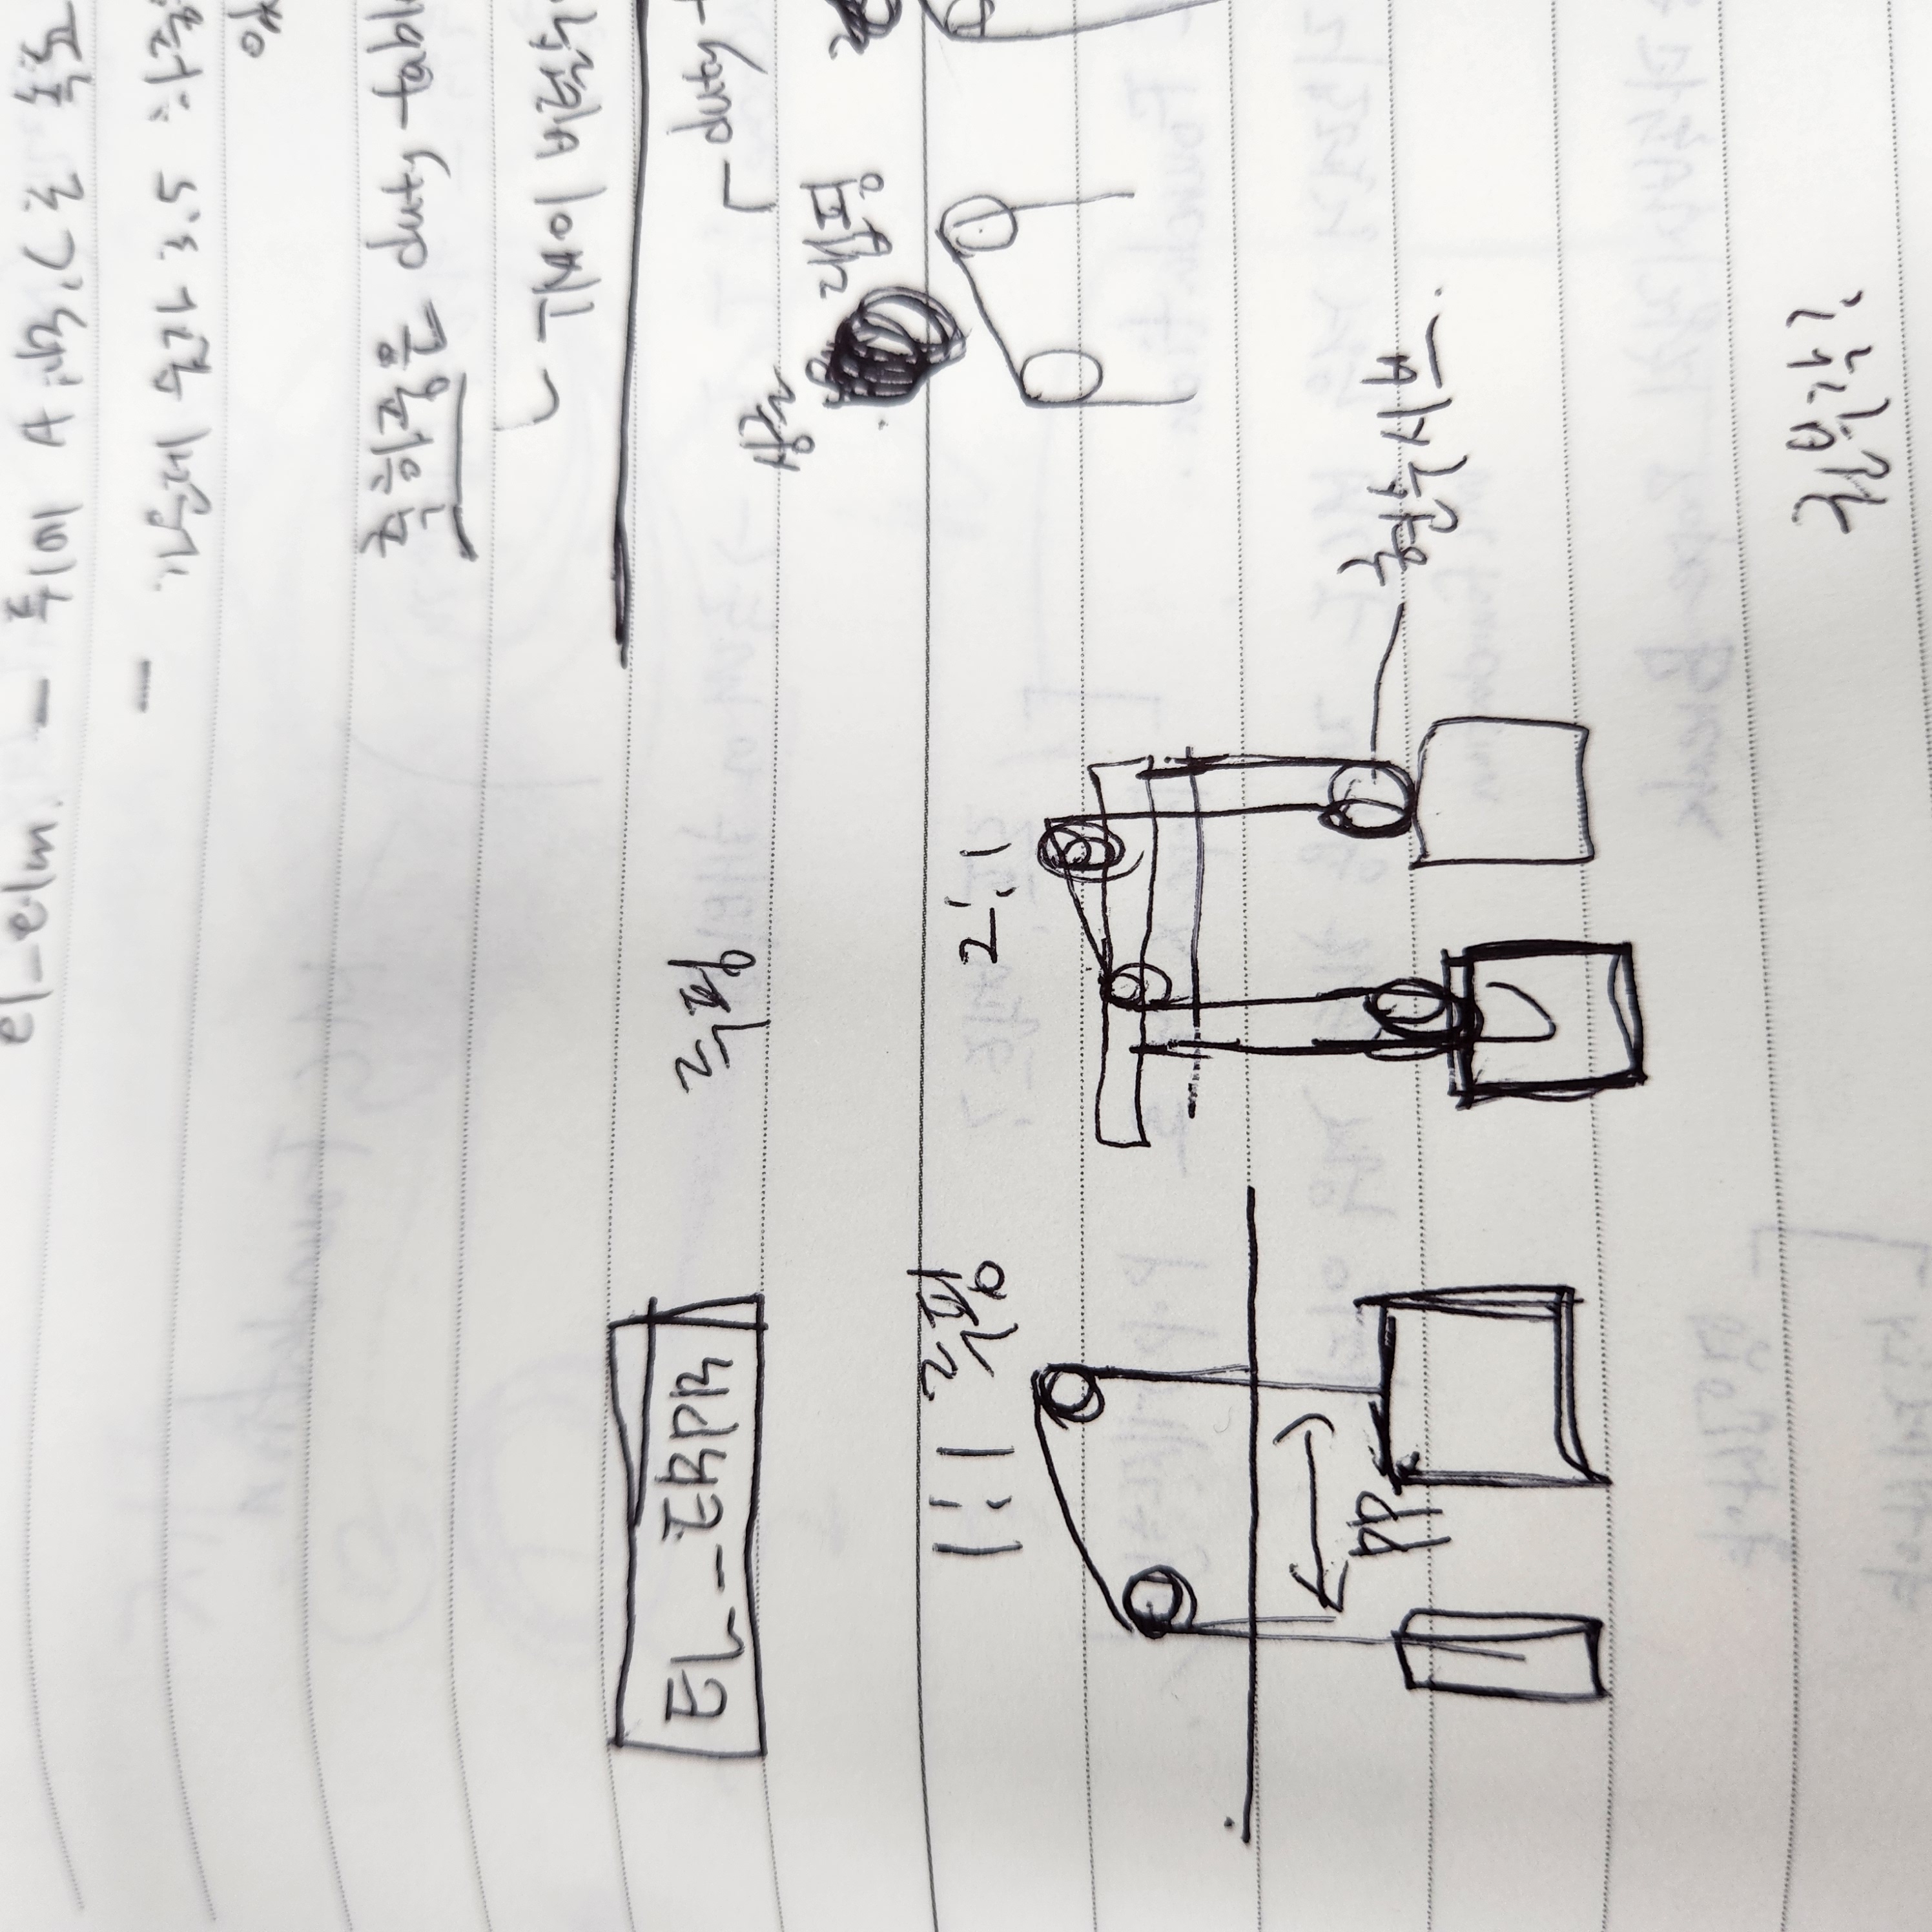 el_elm. - 뒤에 A, B, C는 속도
- 가운데 숫자 3.5 하중
축하중은 duty table
TM이 버틸수
EL_ERPR 루핑
duty
싱글 랩핑
1:1 루핑 2:1
PP
현수시브.
권부각?